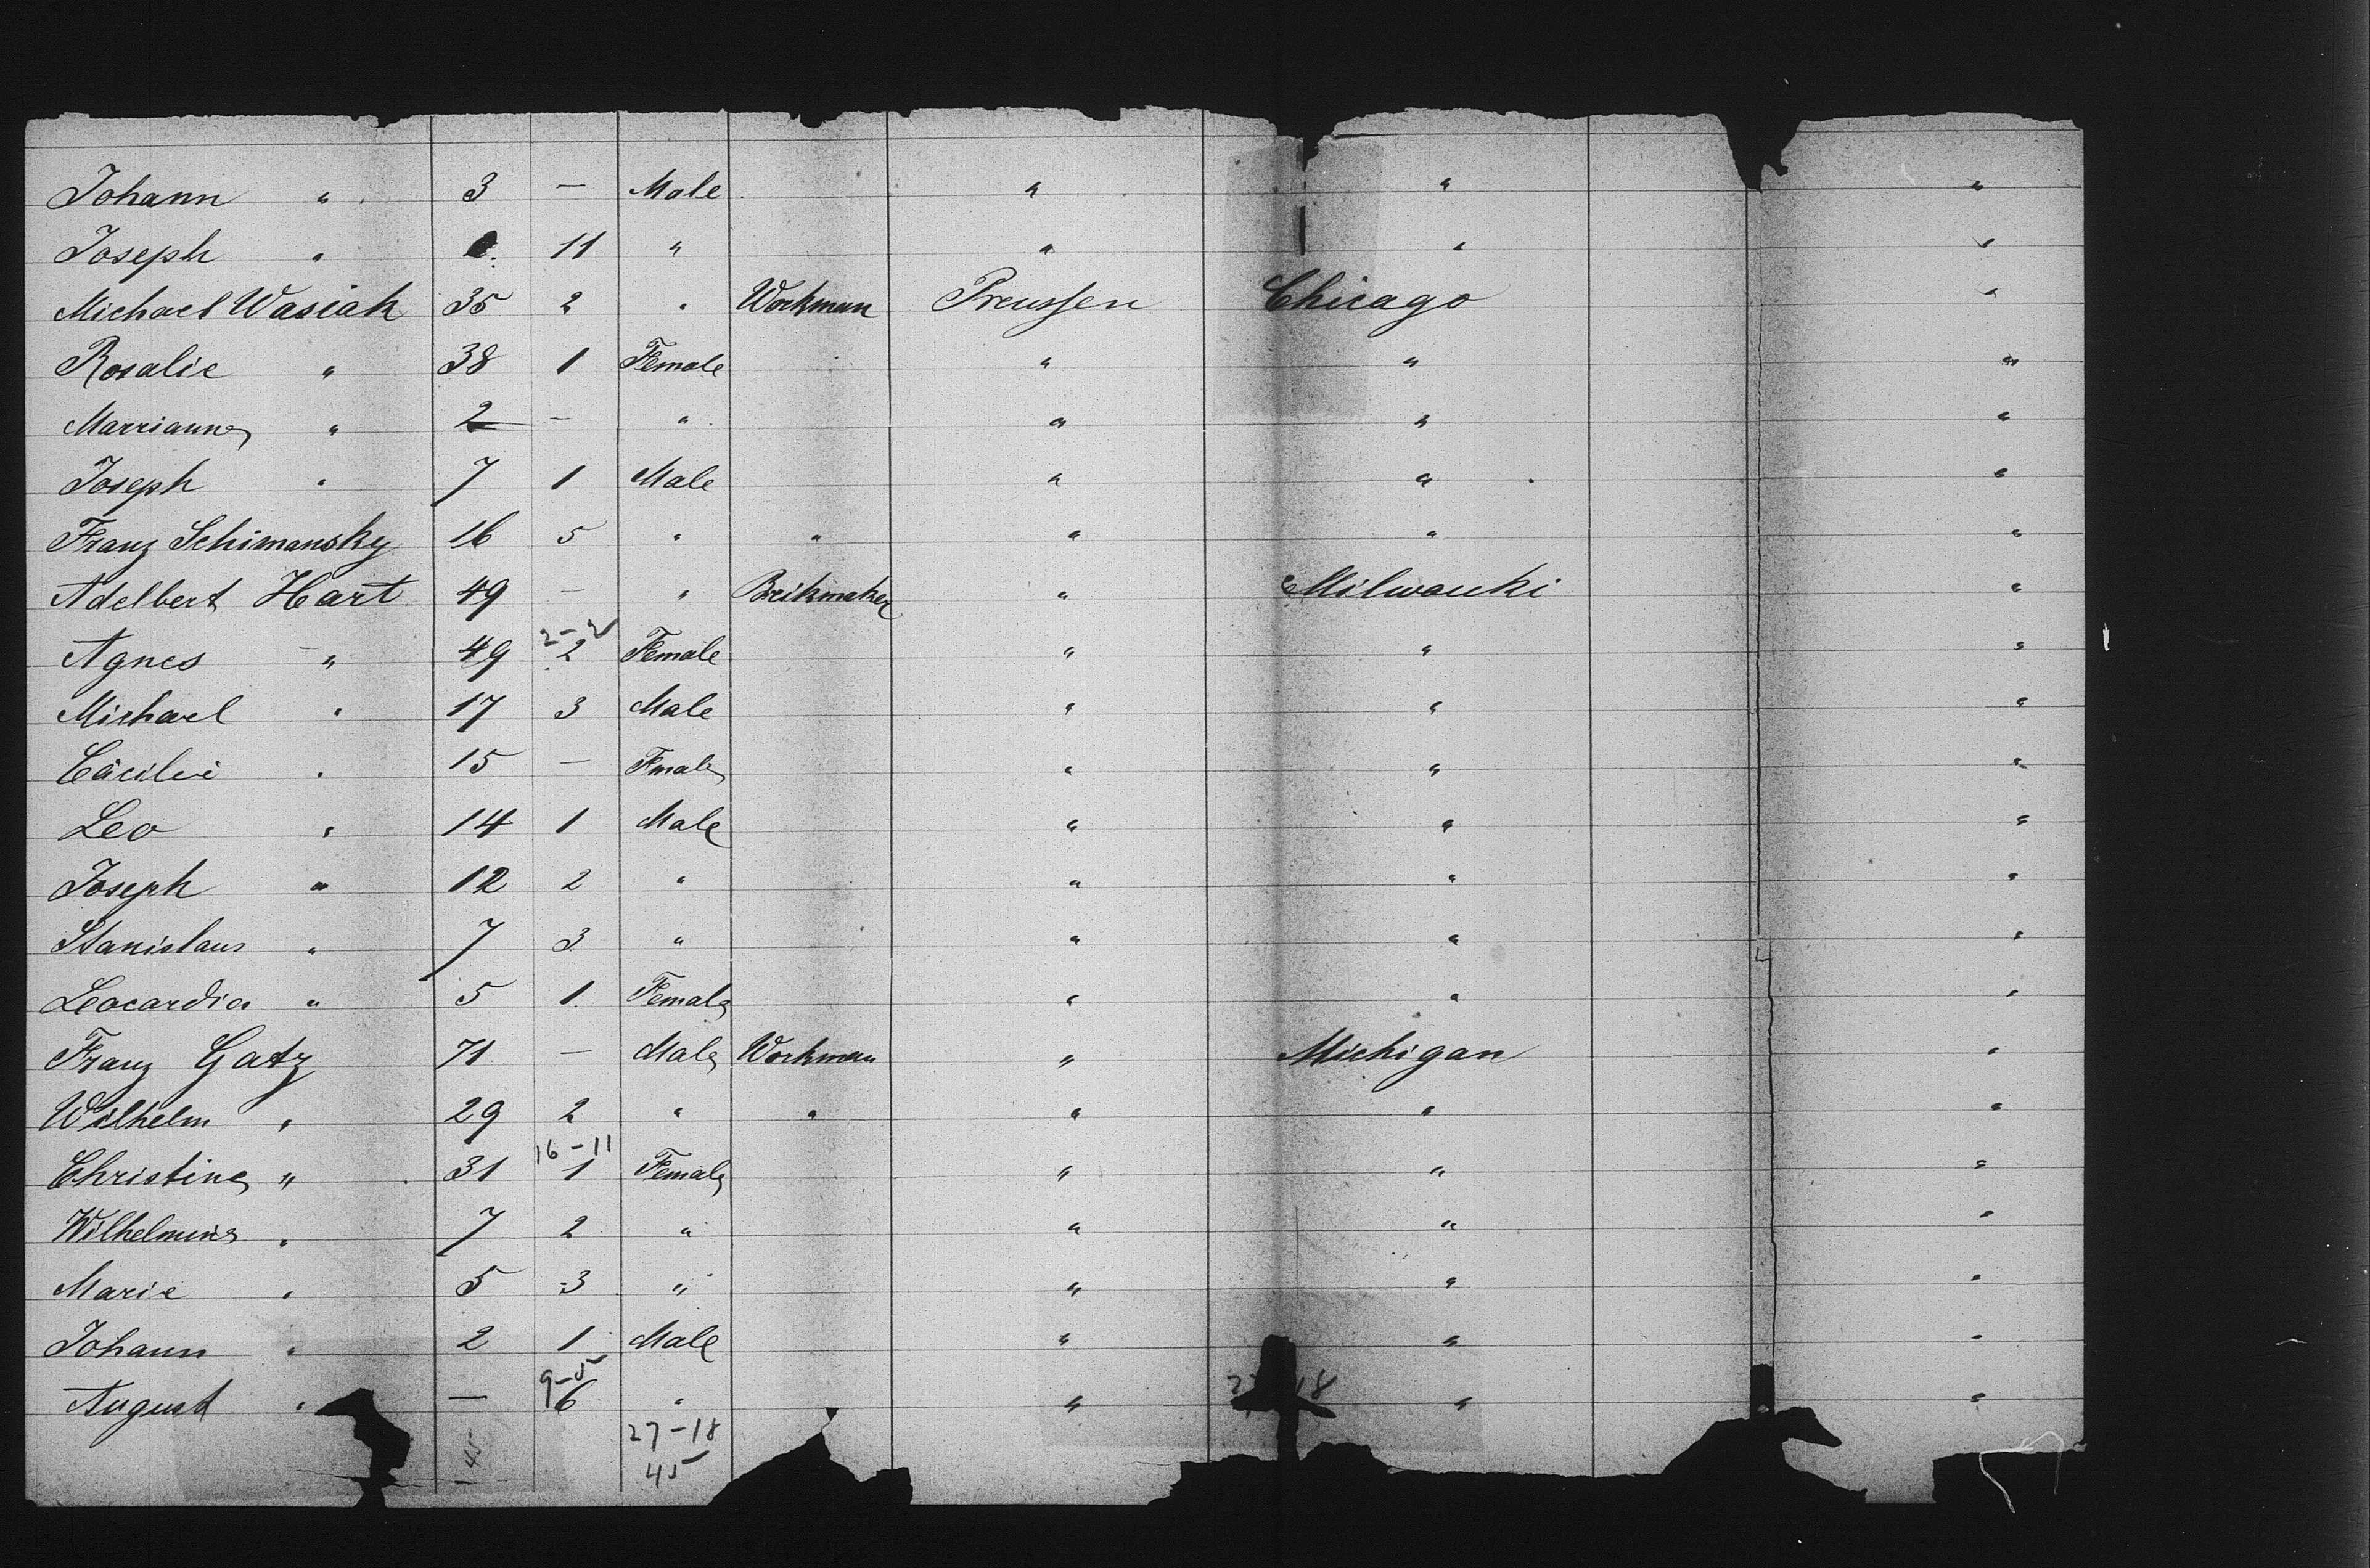 Johann " 3 — Male " " "
Joseph " 11 " " " "
Michael Wasiak 35 2 " Workman Preussen Chicago "
Rosalie " 38 1 Female " " "
Marrianne " 2 — " " " "
Joseph " 7 1 Male " " "
Franz Schimansky 16 5 " " " " "
Adelbert Hart 49 — " Brikmaker " Milwauki "
2-2
Agnes " 49 2 Female " " "
Michael " 17 3 Male " " "
Cäcilie " 15 — Fmale " " "
Leo " 14 1 Male " " "
Joseph " 12 2 " " " "
Stanislaus " 7 3 " " " "
Leocardia " 5 1 Female " " "
Franz Gatz 71 — Male Workman " Michigan "
Wilhelm " 29 2 " " " " "
16-11
Christine " 31 1 Female " " "
Wilhelmine " 7 2 " " " "
Marie " 5 3 " " " "
Johann " 2 1 Male " " "
9-5
August " — 6 " " " "
27-18
45
45